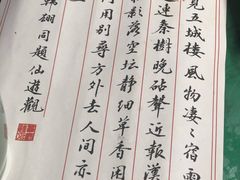 見五城樓風物凄〻宿雨
連秦樹晚砧聲近報漢
影落空壇靜細草香閑
何用別尋方外去人間亦
韓翃同題仙遊觀